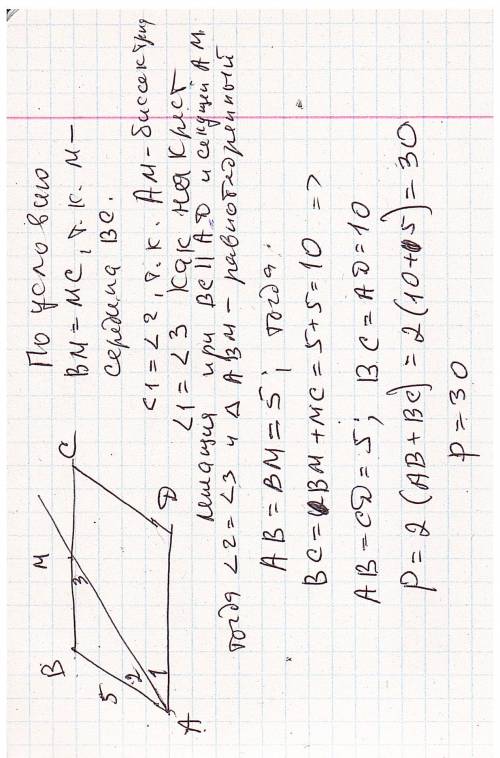 По условию
BM = MC, т.к. M –
середина BC.
∠1 = ∠2, т.к. AM – биссектриса
∠1 = ∠3 как накрест
лежащия при BC || AD и секущей AM.
тогда ∠2 = ∠3 и △ ABM – равнобедренный
AB = BM = 5; тогда:
BC = BM + MC = 5 + 5 = 10 =>
AB = CD = 5; BC = AD = 10
P = 2 (AB + BC) = 2 (10 + 5) = 30
P = 30
B M C
3
5 2
1
A D